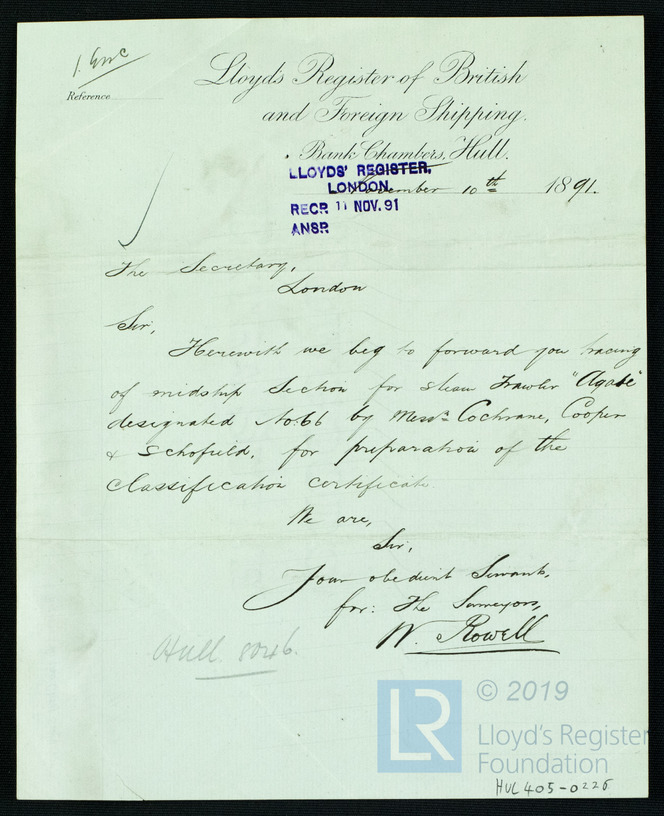 1. Enc
Reference
Lloyds Register of British
and Foreign Shipping.
Bank Chambers, Hull.
LLOYDS' REGISTER,
LONDON.
RECD 11 NOV. 91
ANSD
November 10th 1891.
The Secretary,
London
Sir,
Herewith we beg to forward you tracing
of midship Section for steam Trawler "Agate"
designated No. 66 by Messrs Cochrane, Cooper
& Schofield, for preparation of the
Classification certificate
We are,
Sir,
Your obedient Servants,
for: The Surveyors,
W. Rowell
Hull 8046.
LR
© 2019
Lloyd's Register
Foundation
HUL405-0226